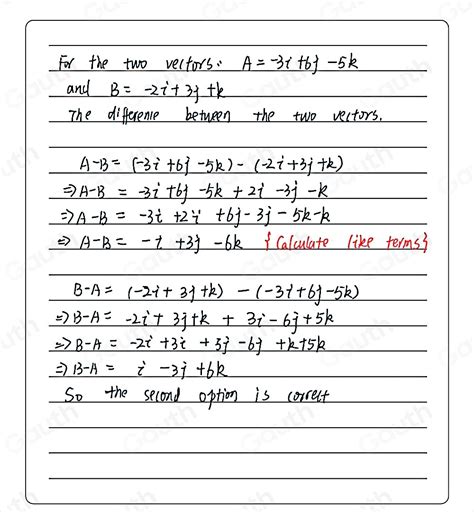 For the two vectors: A = -3i+6j -5k
and B = -2i+3j+k
The difference between the two vectors.
A-B = (-3i+6j-5k) - (-2i+3j+k)
⇒ A-B = -3i+6j -5k + 2i -3j -k
⇒ A-B = -3i +2i +6j -3j -5k-k
⇒ A-B = -i +3j -6k {Calculate like terms}
B-A = (-2i+3j+k) - (-3i+6j-5k)
⇒ B-A = -2i+3j+k + 3i-6j+5k
⇒ B-A = -2i+3i +3j-6j +k+5k
⇒ B-A = i -3j +6k
So the second option is correct